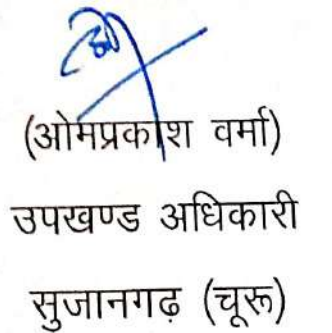 (ओमप्रकाश वर्मा)
उपखण्ड अधिकारी
सुजानगढ़ (चूरू)